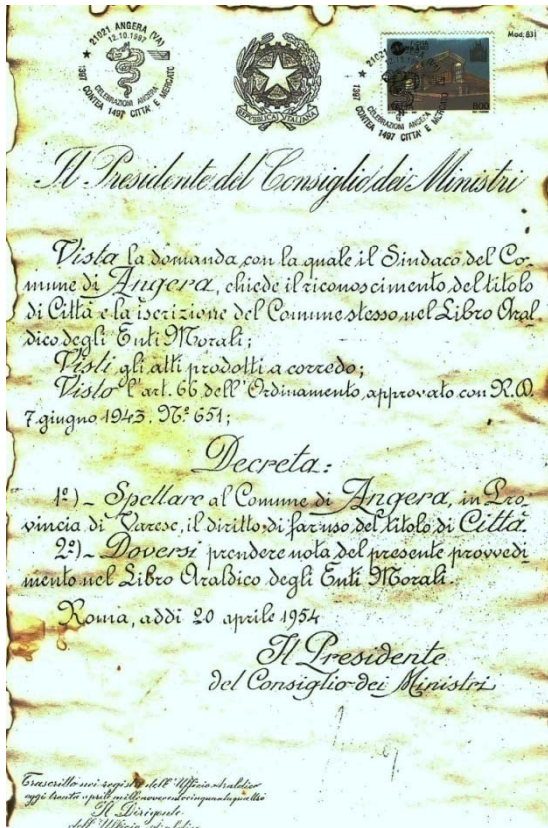 Mod. 831
21021 ANGERA (VA)
12.10.1997
1397 CONTEA 1497 CITTA' E MERCATO
CELEBRAZIONI ANGERA
REPVBBLICA ITALIANA
21021
800
1397 CONTEA 1497 CITTA' E MERCATO
CELEBRAZIONI ANGERA
Il Presidente del Consiglio dei Ministri
Vista la domanda con la quale il Sindaco del Co-
mune di Angera, chiede il riconoscimento del titolo
di Città e la iscrizione del Comune stesso nel Libro Aral-
dico degli Enti Morali;
Visti gli atti prodotti a corredo;
Visto l'art. 66 dell'Ordinamento, approvato con R.D.
7 giugno 1943. Nº 651;
Decreta:
1º) - Spettare al Comune di Angera, in Pro-
vincia di Varese, il diritto di far uso del titolo di Città.
2º) - Doversi prendere nota del presente provvedi-
mento nel Libro Araldico degli Enti Morali.
Roma, addì 20 aprile 1954
Il Presidente
del Consiglio dei Ministri
Trascritto nei registri dell'Ufficio Araldico
oggi trenta aprile millenovecentocinquantaquattro
Il Dirigente
dell'Ufficio Araldico